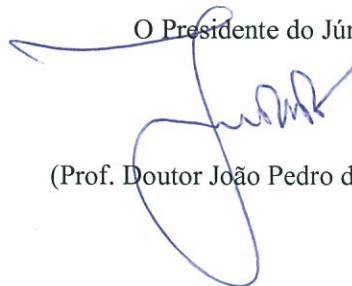 O Presidente do Jú
(Prof. Doutor João Pedro d